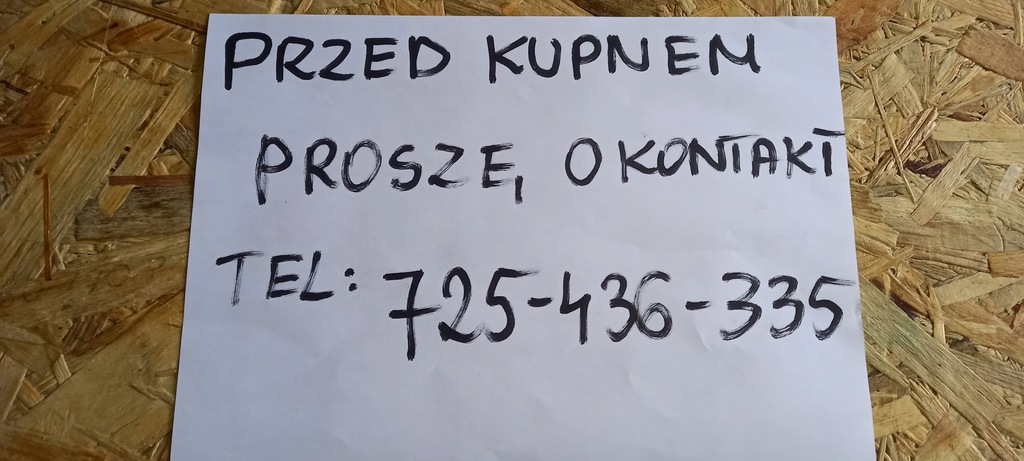 PRZED KUPNEM
PROSZĘ O KONTAKT
TEL: 725-436-335